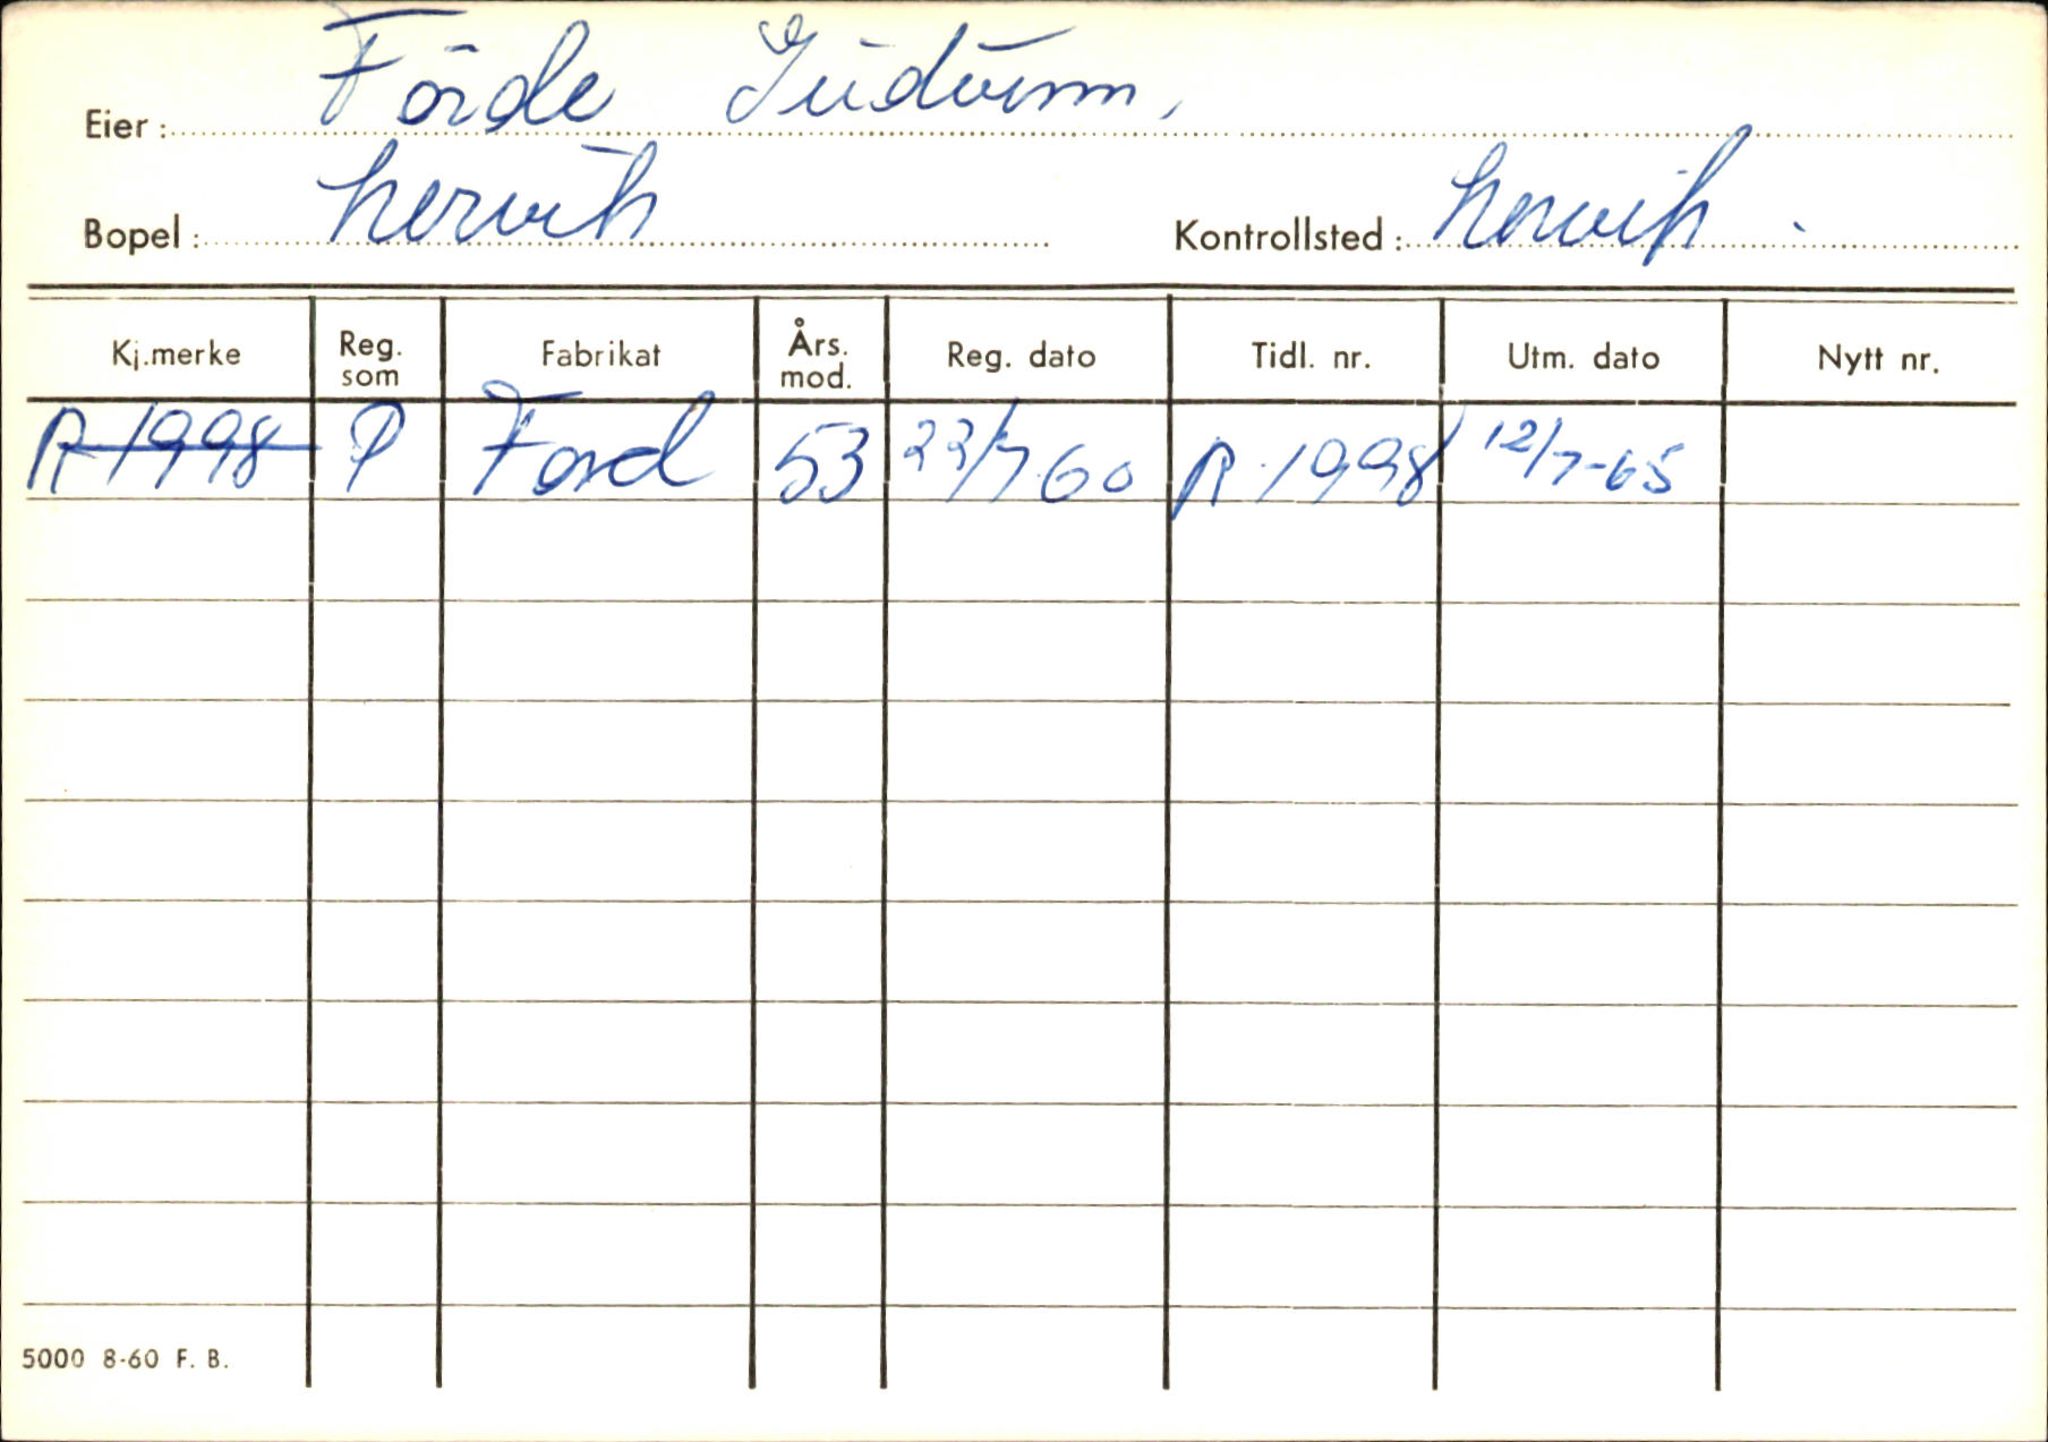 Eier: Förde Gudvinn,
Bopel: Lervik Kontrollsted: Lervik.
Kj.merke Reg. som Fabrikat Års. mod. Reg. dato Tidl. nr. Utm. dato Nytt nr.
R-1998 P Ford 53 22/7.60 R-1998 12/7-65
5000 8-60 F. B.